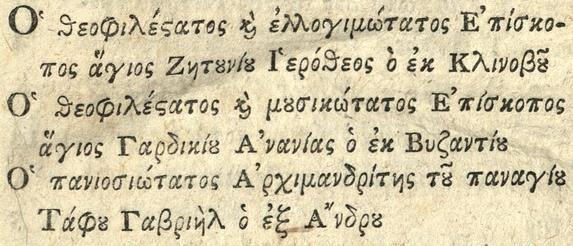 Ὁ θεοφιλέϛατος ϗ ἐλλογιμώτατος Ἐπίσκο-
πος ἅγιος Ζητονίȣ Ἱερόθεος ὁ ἐκ Κλινοβȣ͂
Ὁ θεοφιλέϛατος ϗ μȣσικώτατος Ἐπίσκοπος
ἅγιος Γαρδικίȣ Ἀνανίας ὁ ἐκ Βυζαντίȣ
Ὁ πανιοσιώτατος Ἀρχιμανδρίτης τȣ͂ παναγίȣ
Τάφȣ Γαβριὴλ ὁ ἐξ Ἄνδρȣ